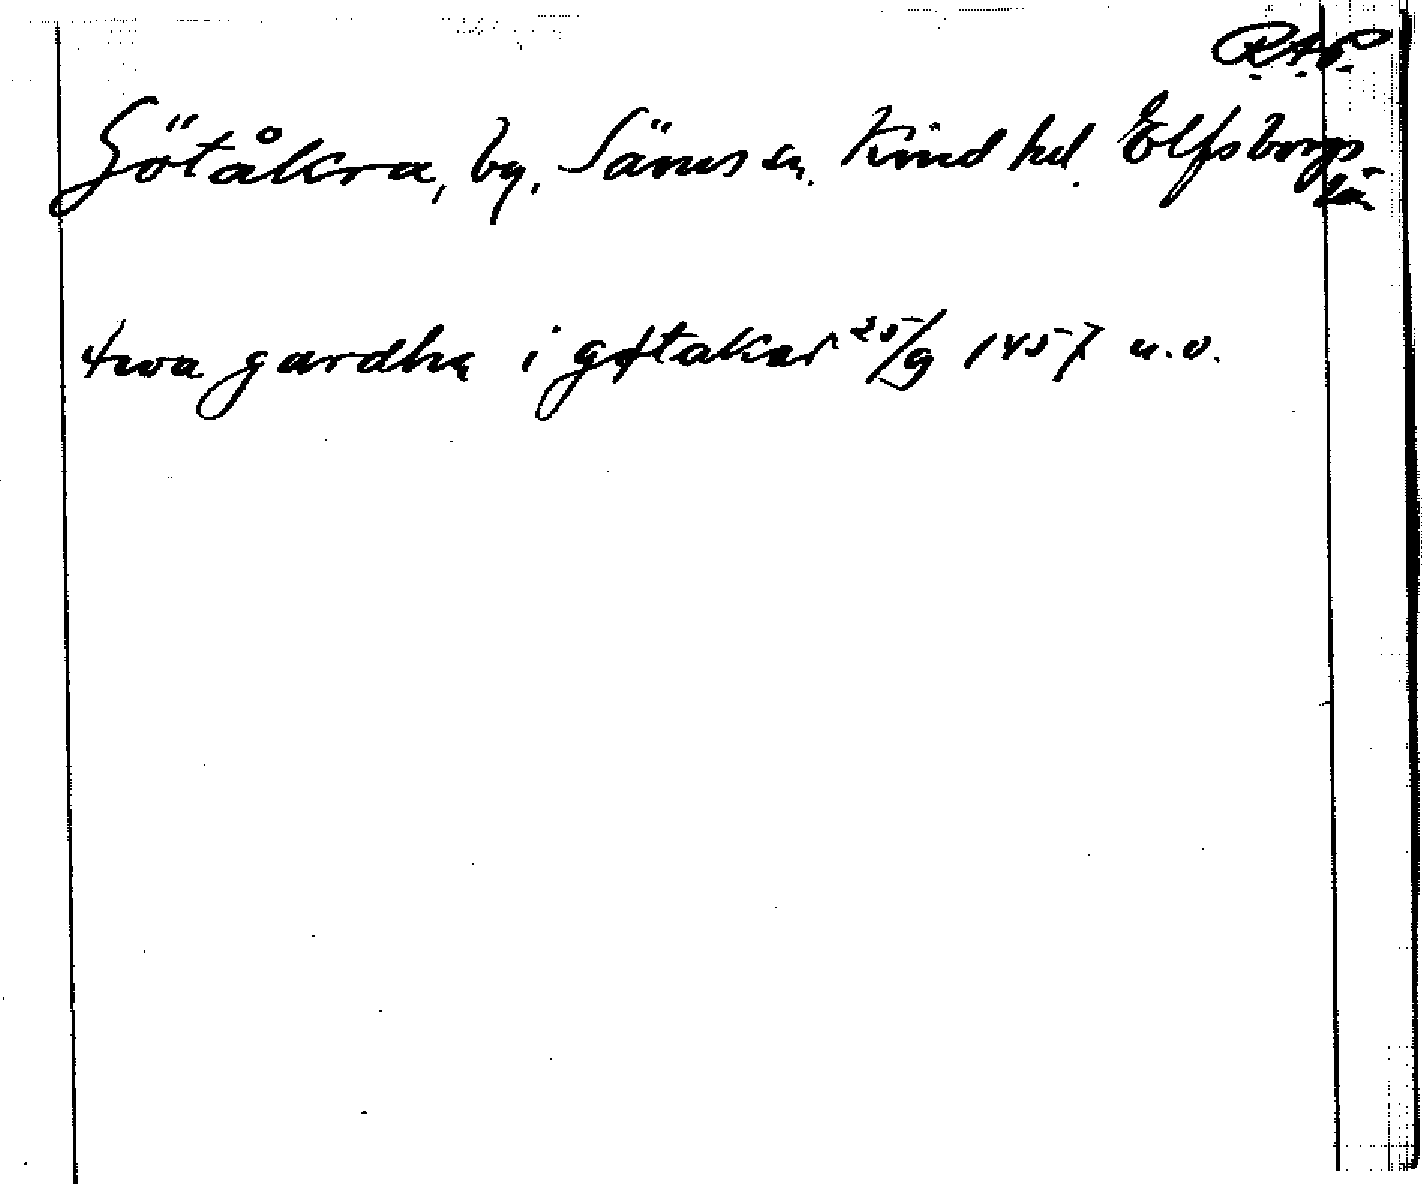 R.A.P.
Götåkra, by, Säms sn. Kind hd. Elfsborgs
län
twa gardha i gøtaker 25/9 1457 u.o.